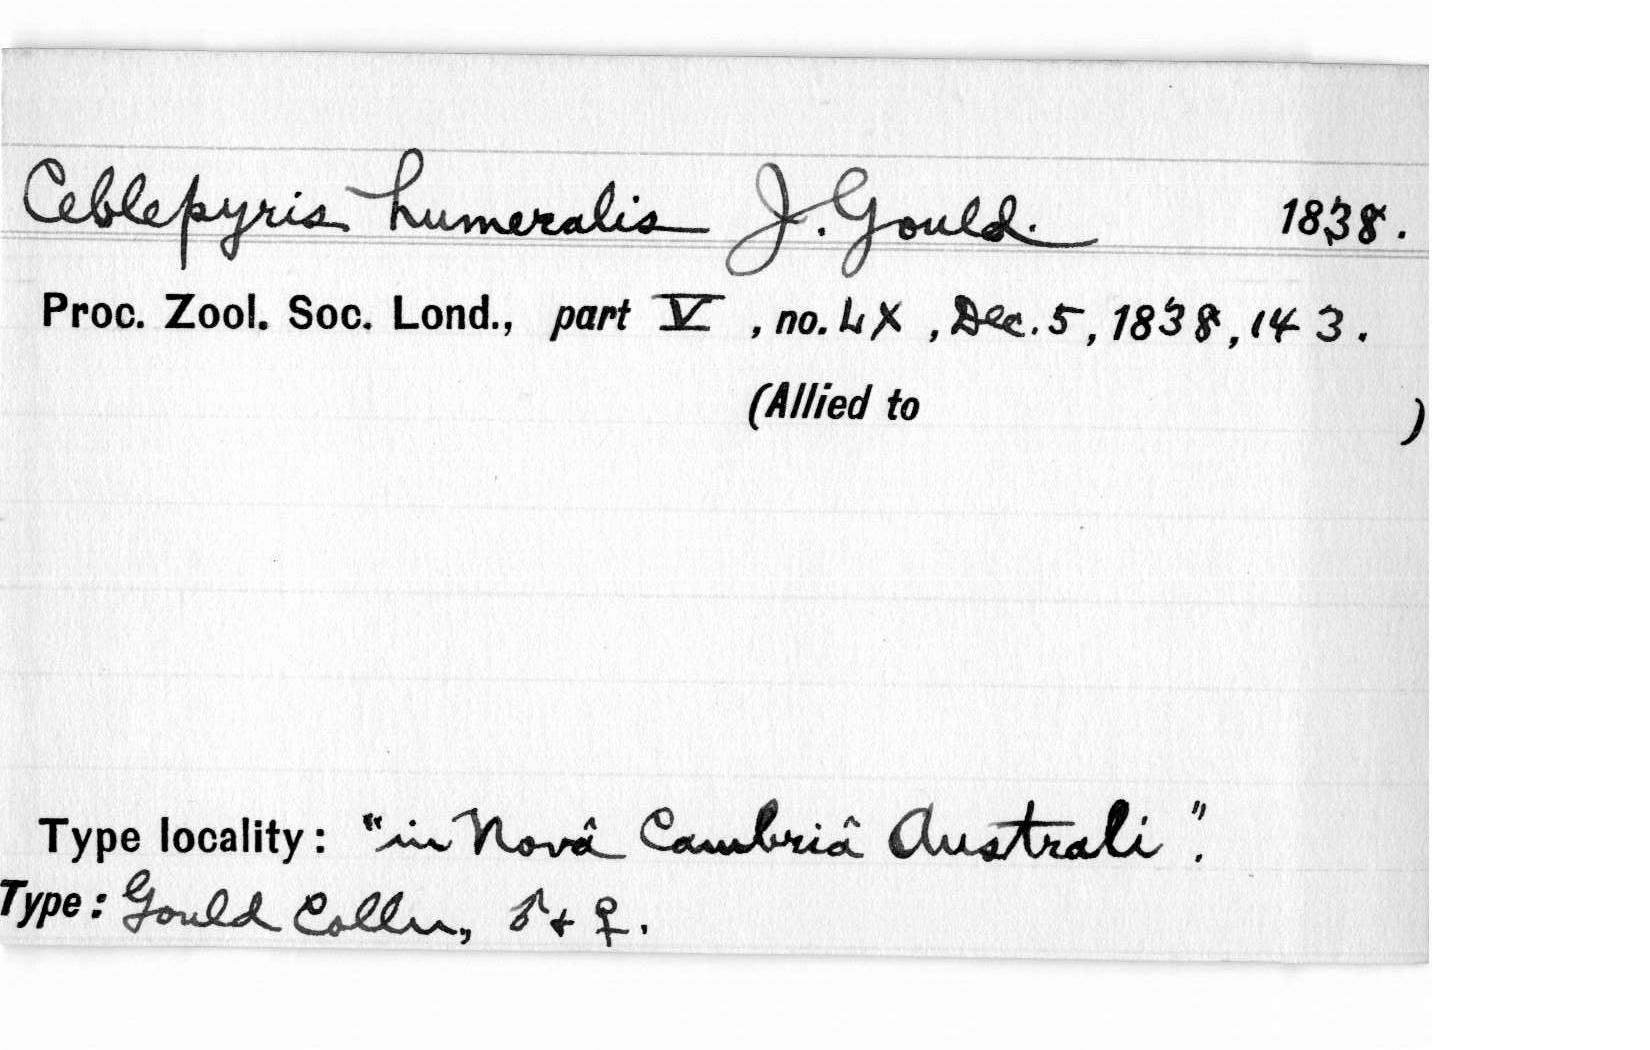 Ceblepyris humeralis J. Gould. 1838.
Proc. Zool. Soc. Lond., part V, no. LX, Dec. 5, 1838, 143.
(Allied to )
Type locality: "in Novâ Cambriâ Australi".
Type: Gould Colln., ♂ + ♀.